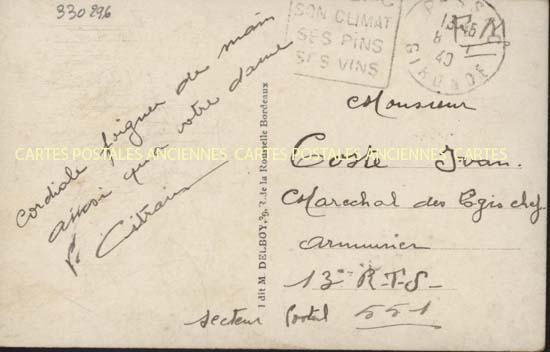 330296
SON CLIMAT
SES PINS
SES VINS
13-45
8
40
GIRONDE
F.M.
Cordiale poignée de main
aussi qu'a votre dame
P. Citrain
Edit M. DELBOY, R. de la Rousselle Bordeaux
CARTES POSTALES ANCIENNES CARTES POSTALES ANCIENNES CARTES POSTALES ANCIENNES
Monsieur
Coste Ivan.
Marechal des Logis chef
armurier
13e R-T-S-
secteur Postal 551